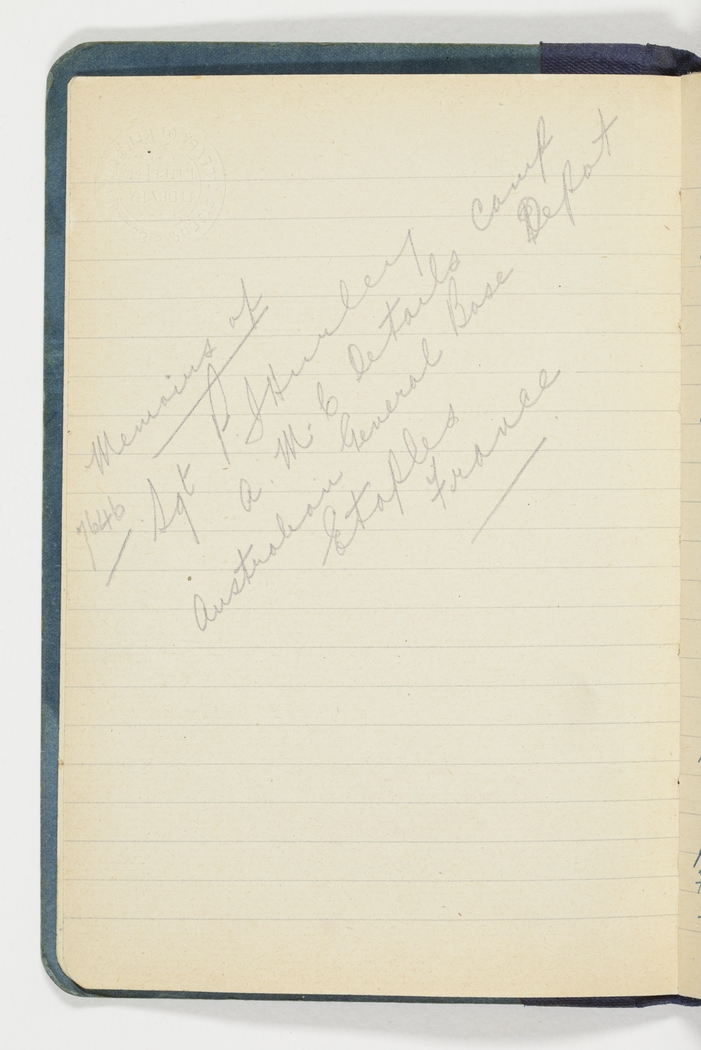 Memoirs of
7646 Sgt P. S Hunley
A. M. C Details Camp
Australian General Base Depot
Etaples
France